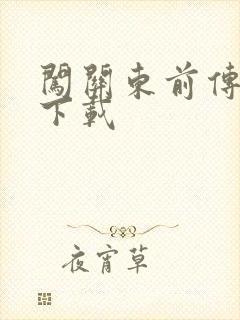 闖關東前傳
下載
夜宵草